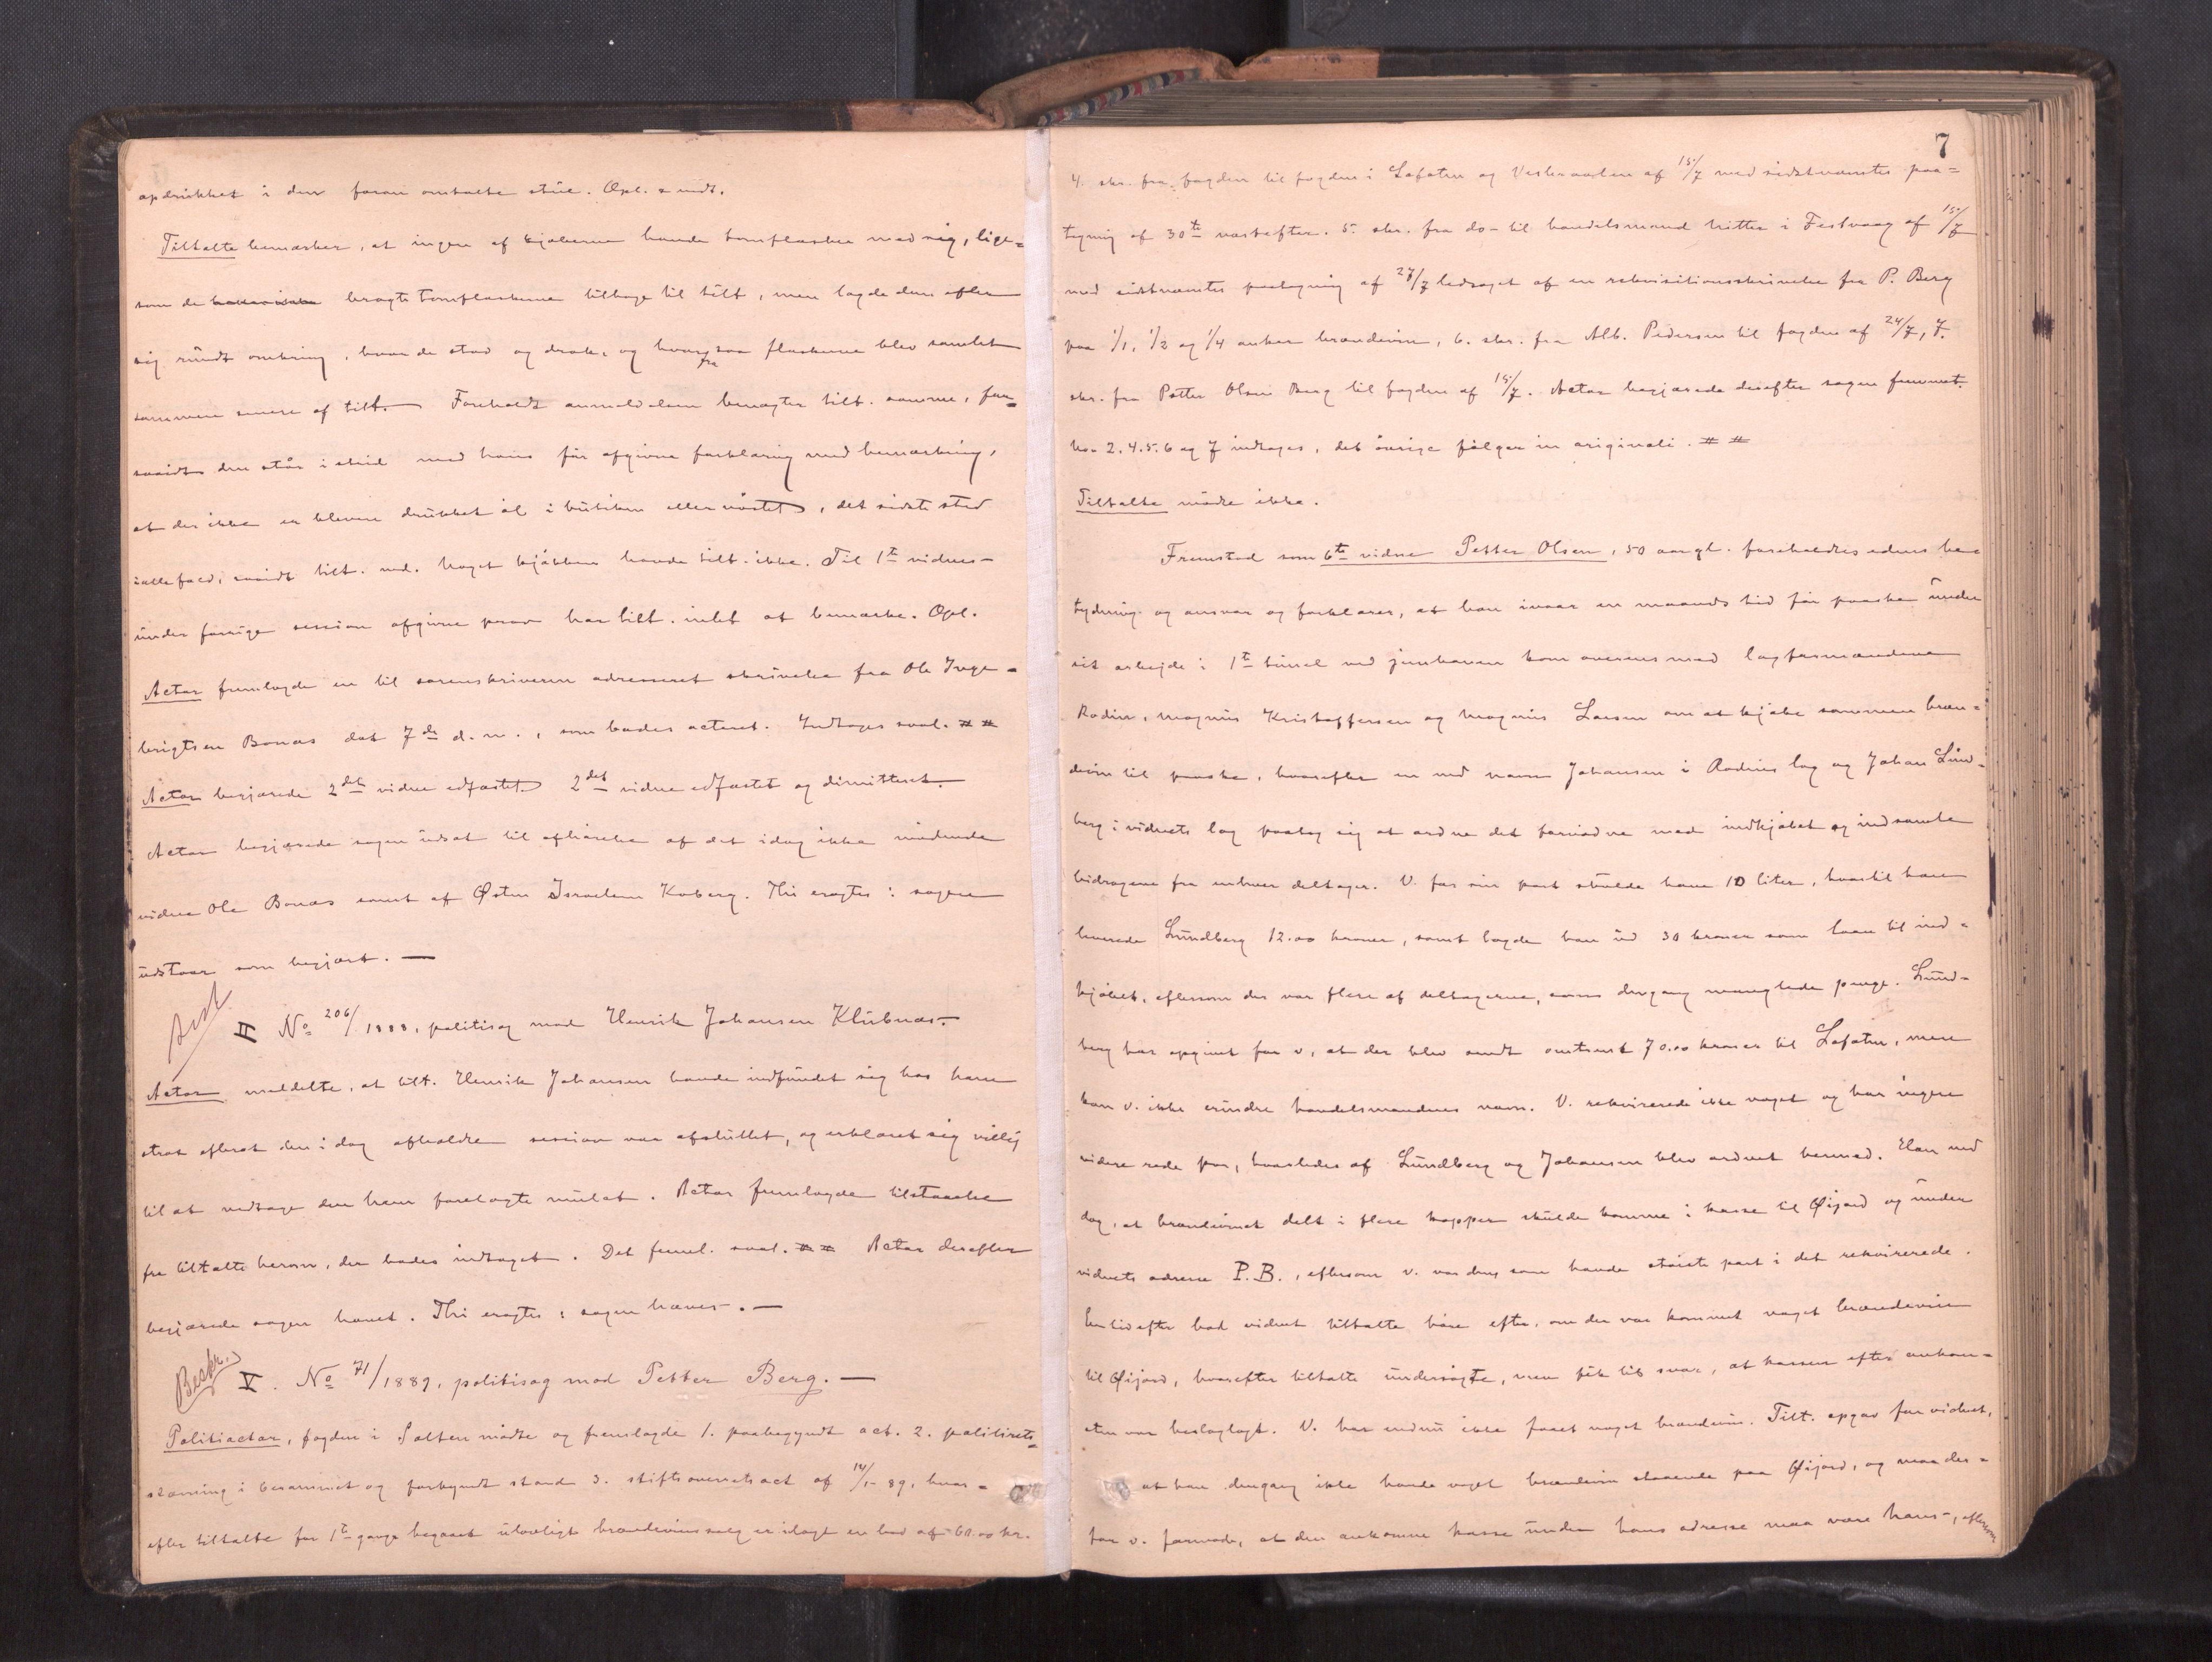 opdrukket i den foran omtalte stue. Opl. & vedt.
Tiltalte bemærker, at ingen af kjøberne havde tomflasker med sig, lige-
som de bragte tomflaskerne tilbage til tilt, men lagde dem efter
sig rundt omkring, hvor de stod og drak, og hvorfra saa flaskerne blev samlet
sammen senere af tilt. Foreholdt anmeldelsen benægter tilt. samme, for-
saavidt den står i strid med hans før afgivne forklaring med bemærkning,
at der ikke er bleven drukket øl i butiken eller nøstet, det sidste sted
iallefald, saavidt tilt. ved. Noget kjøkken havde tilt. ikke. Til 1te vidnes
under forrige session afgivne prov har tilt. intet at bemærke. Opl.
Actor fremlagde en til sorenskriveren adresseret skrivelse fra Ole Inge-
brigtsen Bonæs dat 7de d.m., som bades acteret. Indtages saal. # #
Actor begjærede 2det vidne edfæstet. 2det vidne edfæstet og dimitteret.
Actor begjærede sagen udsat til afhørelse af det idag ikke mødende
vidne Ole Bonæs samt af Østen Israelsen Koberg. Thi eragtes: sagen
udstaar som begjært. —
II No 206/1888, politisag mod Henrik Johansen Klubnæs.
Actor meddelte, at tilt. Henrik Johansen havde indfundet sig hos ham
strax efterat den i dag afholdte session var afsluttet, og erklæret sig villig
til at vedtage den ham forelagte mulct. Actor fremlagde tilstaaelse
fra tiltalte herom, der bades indtaget. Det freml. saal. # # Actor derefter
begjærede sagen hævet. Thi eragtes: sagen hæves. —
Beskr.
V. No 71/1889, politisag mod Petter Berg. —
Politiactor, fogden i Salten mødte og fremlagde 1. paabegyndt act. 2. politirets-
stævning i berammet og forkyndt stand 3. stiftsoverretsact af 14/1 89, hvor-
efter tiltalte for 1te gangs begaaet ulovligt brændevinssalg er ilagt en bod af 60.00 kr.
7
4. skr. fra fogden til fogden i Lofoten og Vesteraalen af 15/7 med sidstnævntes paa-
tegning af 30te næstefter. 5. skr. fra do- til handelsmand Kitter i Festvaag af 15/7
med sidstnævntes paategning af 27/7 ledsaget af en rekvisitionsskrivelse fra P. Berg
paa 1/1, 1/2 og 1/4 anker brændevin, 6. skr. fra Alb. Pedersen til fogden af 24/7, 7.
skr. fra Petter Olsen Berg til fogden af 15/7. Actor begjærede derefter sagen fremmet.
No. 2. 4. 5. 6 og 7 indtages, det øvrige følger in originali. # #
Tiltalte mødte ikke.
Fremstod som 6te vidne Petter Olsen, 50 aar gl. foreholdtes edens be-
tydning og ansvar og forklarer, at han ivaar en maaneds tid før paaske under
sit arbejde i 1te tunnel ved jernbanen kom overens med lagformændene
Rodin, Magnus Kristoffersen og Magnus Larsen om at kjøbe sammen bræn-
devin til paaske, hvorefter en ved navn Johansen i Rodins lag og Johan Lund-
berg i vidnets lag paatog sig at ordne det fornødne med indkjøbet og indsamle
bidragene fra enhver deltager. V. for sin part skulde have 10 liter, hvortil han
leverede Lundberg 12.00 kroner, samt lagde han ud 30 kroner som laan til ind-
kjøbet, eftersom der var flere af deltagerne, som dengang manglede penge. Lund-
berg har opgivet for v, at der blev sendt omtrent 70.00 kroner til Lofoten, men
kan v. ikke erindre handelsmandens navn. V. rekvirerede ikke noget og har ingen
videre rede paa, hvorledes af Lundberg og Johansen blev ordnet hermed. Han ved
dog, at brændevinet delt i flere kagger skulde komme i kasse til Øijord og under
vidnets adresse P.B., eftersom v. var den, som havde største part i det rekvirerede.
En tid efter bad vidnet tiltalte høre efter, om der var kommet noget brændevin
til Øijord, hvorefter tiltalte undersøgte, men fik til svar, at kassen efter ankom-
sten var beslaglagt. V. har endnu ikke faaet noget brændevin. Tilt. opgav for vidnet,
at han dengang ikke havde noget brændevin staaende paa Øijord, og maa der-
for v. formode, at den ankomne kasse under hans adresse maa være hans, eftersom